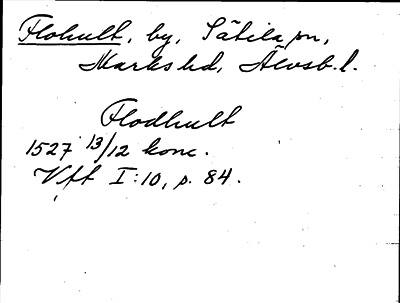 Flohult, by, Sätila sn,
Marks hd, Älvsb. l.
Flodhult
1527 13/12 konc.
Vft I:10, p. 84.